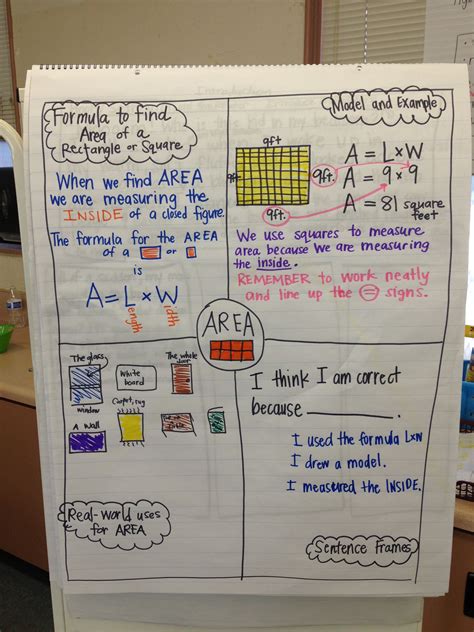 Formula to find
Area of a
Rectangle or Square
When we find AREA
we are measuring the
INSIDE of a closed figure.
The formula for the AREA
of a or
is
A=L×W
Length Width
Model and Example
9ft.
9ft.
A = L×W
9ft. A = 9 × 9
9ft. A = 81 square feet
We use squares to measure
area because we are measuring
the inside.
REMEMBER to work neatly
and line up the = signs.
AREA
The glass
window
White board
The whole door
A Wall
Carpet, rug
Real-world uses
for AREA
I think I am correct
because
I used the formula LxW
I drew a model.
I measured the INSIDE.
Sentence Frames